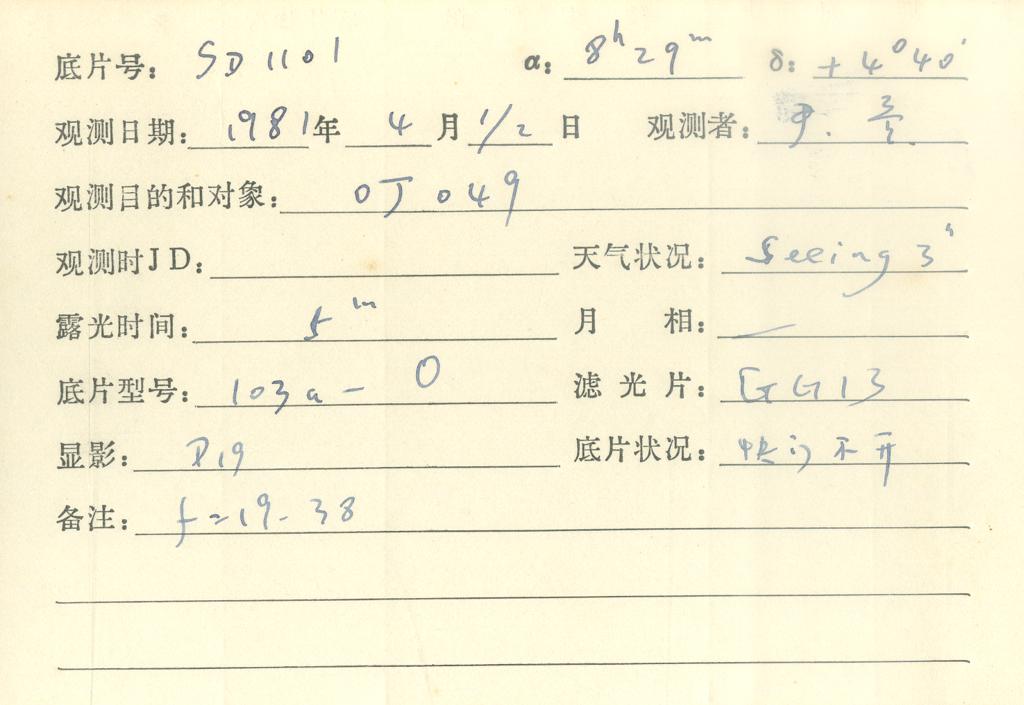 底片号: SD1101 α: 8h29m δ: +4°40′
观测日期: 1981年 4月 1/2 日 观测者:
观测目的和对象: OJ 049
观测时JD: 天气状况: Seeing 3"
露光时间: 5m 月相: —
底片型号: 103a-O 滤光片: GG13
显影: D19 底片状况: 快门不开
备注: f=19.38